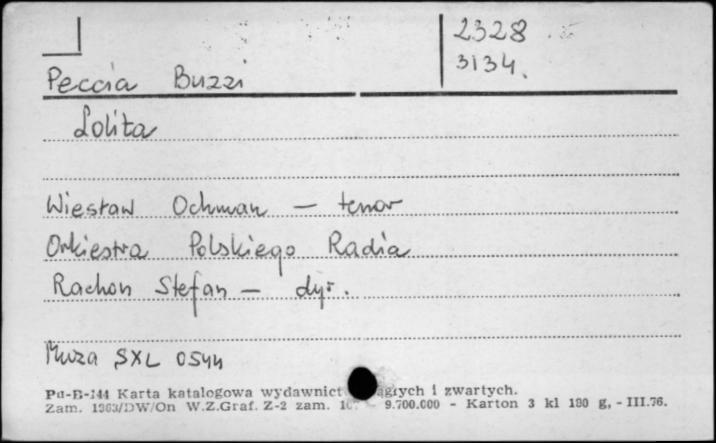 2328
3134.
Peccia Buzzi
Lolita
Wiesław Ochman — tenor
Orkiestra Polskiego Radia
Rachon Stefan — dyr.
Muza SXL 0544
Pu-B-144 Karta katalogowa wydawnict ągłych i zwartych.
Zam. 1963/DW/On W.Z.Graf. Z-2 zam. 9.700.000 - Karton 3 kl 180 g, - III.76.